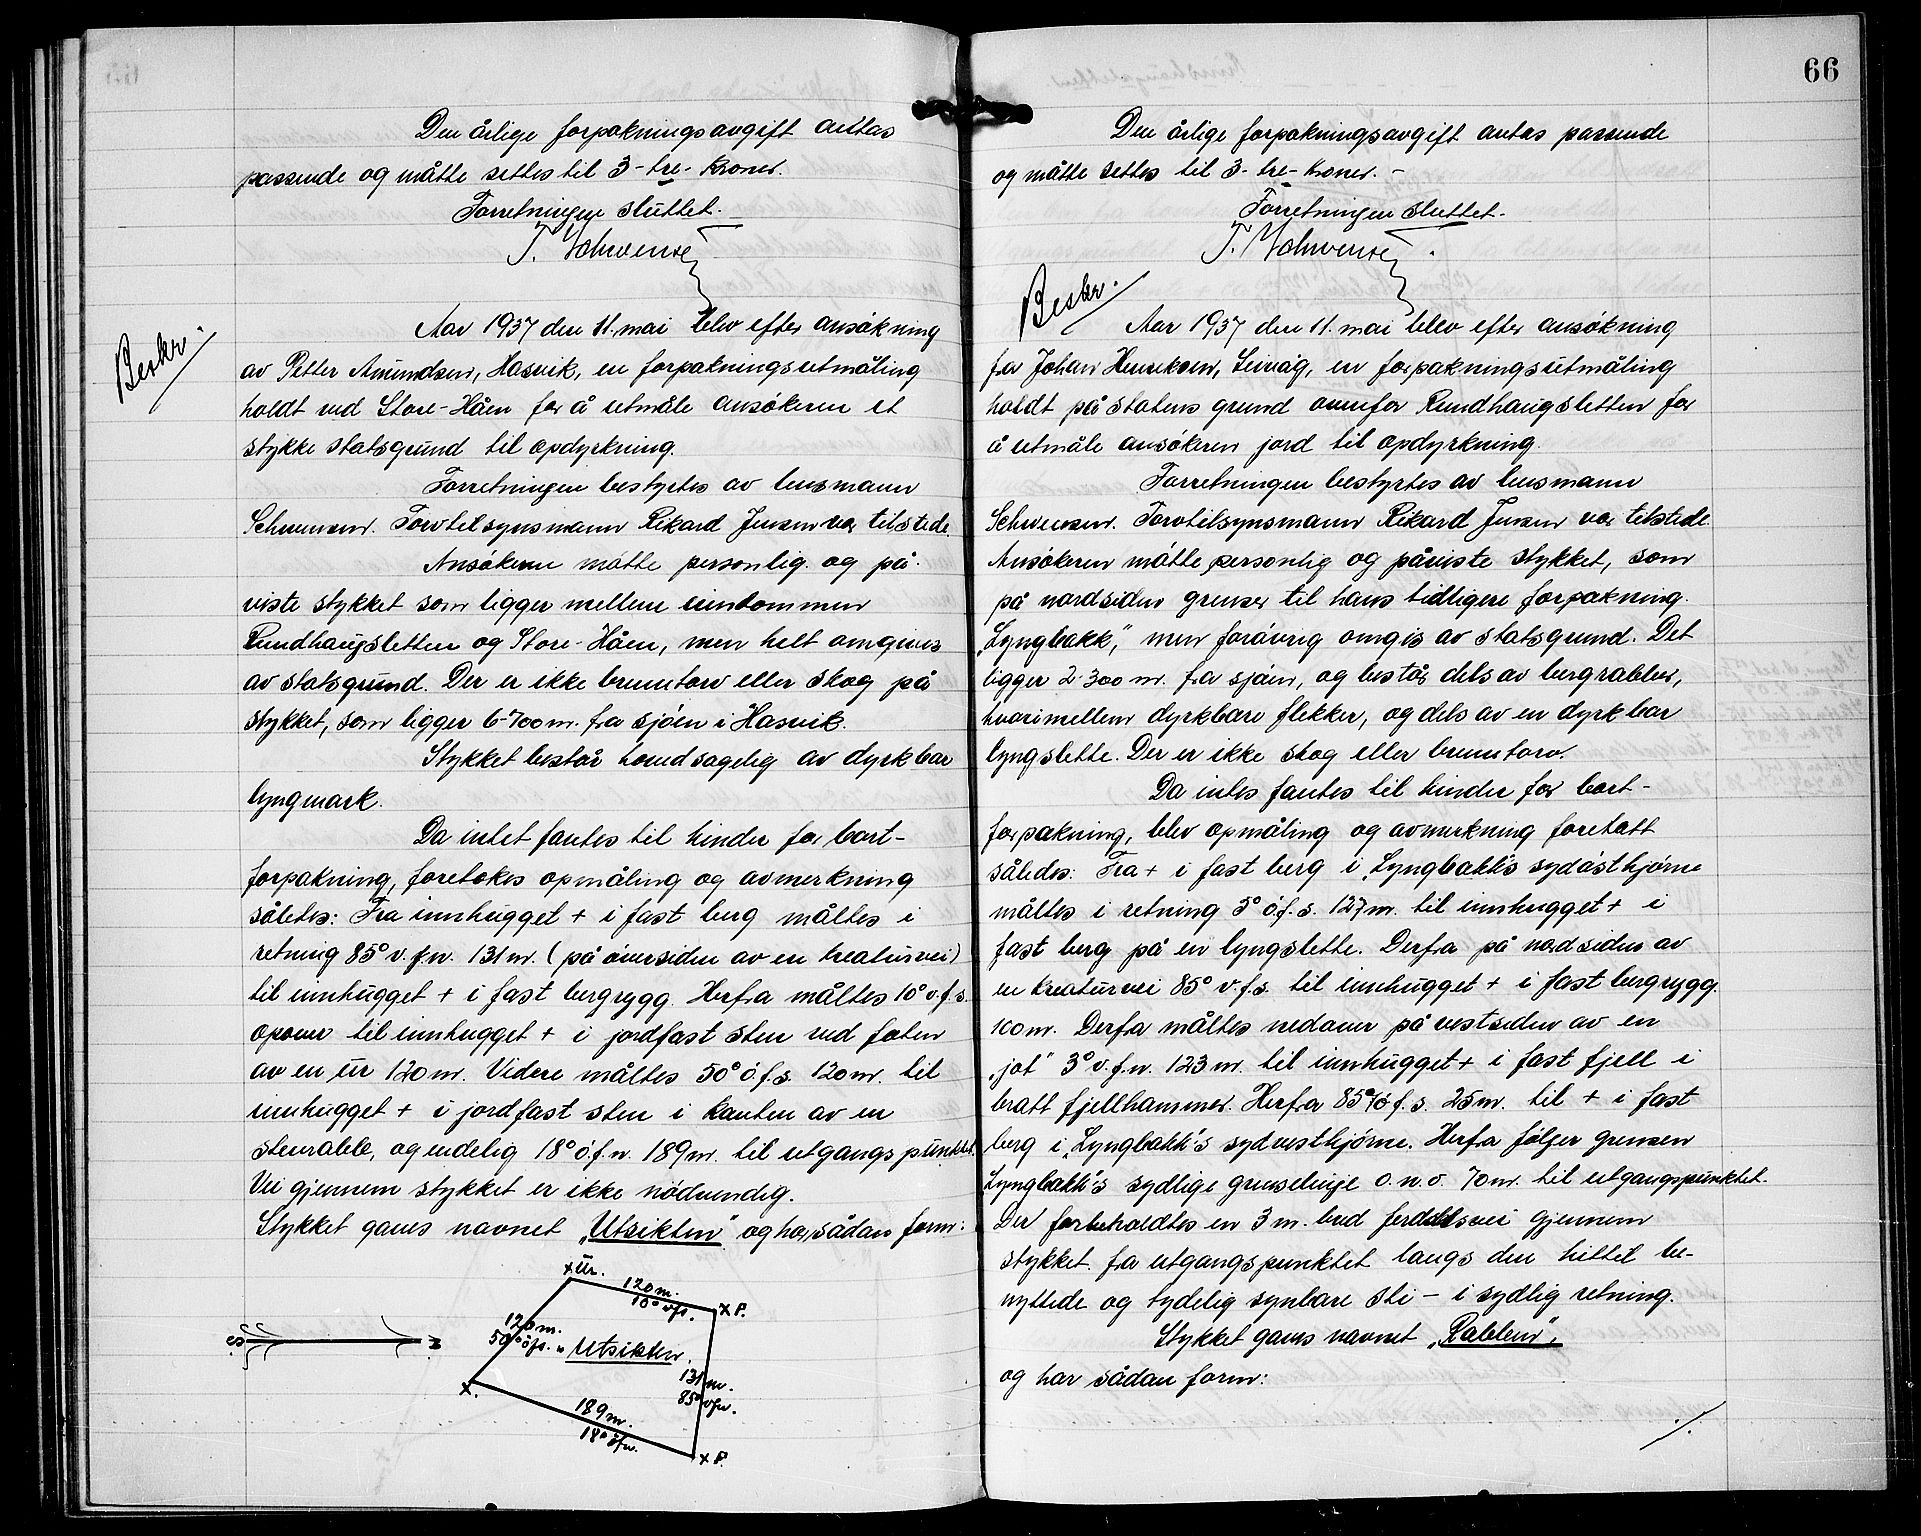 Den årlige forpakningsavgift antas
passende og måtte settes til 3-tre- kroner.
Forretningen sluttet.
T. Schwensen
Beskr.
Aar 1937 den 11. mai blev efter ansökning
av Petter Amundsen, Hasvik, en forpakningsutmåling
holdt ved Store-Håen for å utmåle ansökeren et
stykke statsgrund til opdyrkning.
Forretningen bestyrtes av lensmann
Schwensen. Torvtilsynsmann Rikard Jensen var tilstede.
Ansökeren mötte personlig og på-
viste stykket som ligger mellem eiendommen
Rundhaugsletten og Store-Håen, men helt omgives
av statsgrund. Der er ikke brenntorv eller skog på
stykket, som ligger 6-700 m. fra sjöen i Hasvik.
Stykket består hovedsagelig av dyrkbar
lyngmark.
Da intet fantes til hinder for bort-
forpakning, foretokes opmåling og avmerkning
således: Fra innhugget + i fast berg måltes i
retning 85° v.f.n. 131 m. (på översiden av en kreaturvei)
til innhugget + i fast bergrygg. Herfra måltes 10° v.f.s.
opover til innhugget + i jordfast sten ved foten
av en ur 120 m. Videre måltes 50° ö.f.s. 120 m. til
innhugget + i jordfast sten i kanten av en
stenrabb, og endelig 18° ö.f.n. 189 m. til utgangspunktet.
Vei gjennem stykket er ikke nödvendig.
Stykket gaves navnet „Utsikten" og har sådan form:
x Ur.
120 m.
10° vfs.
x P.
120 m.
50° öfs.
„Utsikten.
S.
N
131 m.
85° vfn.
x.
189 m.
18° öfn.
x P.
66
Den årlige forpakningsavgift antas passende
og måtte settes til 3- tre- kroner. -
Forretningen sluttet.
T. Schwensen.
Beskr.
Aar 1937 den 11. mai blev efter ansökning
fra Johan Henriksen, Leirvåg, en forpakningsutmåling
holdt på statens grund ovenfor Rundhaugsletten for
å utmåle ansökeren jord til opdyrkning.
Forretningen bestyrtes av lensmann
Schwensen. Torvtilsynsmann Rikard Jensen var tilstede.
Ansökeren mötte personlig og påviste stykket, som
på nordsiden grenser til hans tidligere forpakning
„Lyngbakk", men forövrig omgis av statsgrund. Det
ligger 2-300 m. fra sjöen, og består dels av bergrabber,
hvorimellem dyrkbare flekker, og dels av en dyrkbar
lyngslette. Der er ikke skog eller brenntorv.
Da intes fantes til hinder for bort-
forpakning, blev opmåling og avmerkning foretatt
således: Fra + i fast berg i „Lyngbakk's sydösthjörne
måltes i retning 3° ö.f.s. 127 m. til innhugget + i
fast berg på en lyngslette. Derfra på nordsiden av
en kreaturvei 85° v.f.s. til innhugget + i fast bergrygg.
100 m. Derfra måltes nedover på vestsiden av en
„jot" 3° v.f.n. 123 m. til innhugget + i fast fjell i
bratt fjellhammer. Herfra 85° ö.f.s. 25 m. til + i fast
berg i „Lyngbakk's sydvesthjörne. Herfra fölger grensen
Lyngbakk's sydlige grenselinje o.n.ö. 70 m. til utgangspunktet.
Der forbeholdtes en 3 m. bred ferdselsvei gjennem
stykket fra utgangspunktet langs den hittil be-
nyttede og tydelig synbare sti - i sydlig retning.
Stykket gaves navnet „Rabben",
og har sådan form:
./.